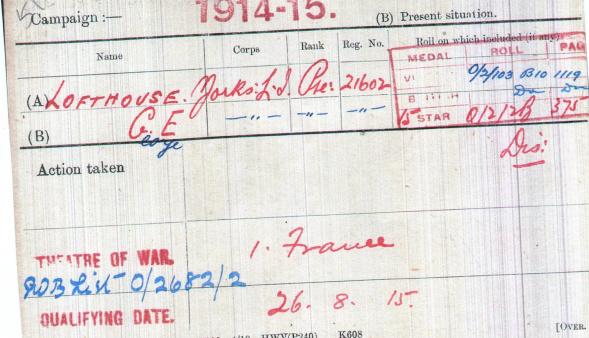 Campaign :— 1914-15. (B) Present situation.
Name Corps Rank Reg. No. Roll on which included (if any)
MEDAL ROLL PAG
(A) LOFTHOUSE. Yorks: L.I. Pte: 21602
VI O/2/103 B10 1119
B Do Do
15 STAR O/2/2B 375
(B) G. E —„— —„— —„—
eorge
Dis:
Action taken
THEATRE OF WAR. 1. France
List O/2682/2
QUALIFYING DATE. 26. 8. 15.
K608
[OVER.